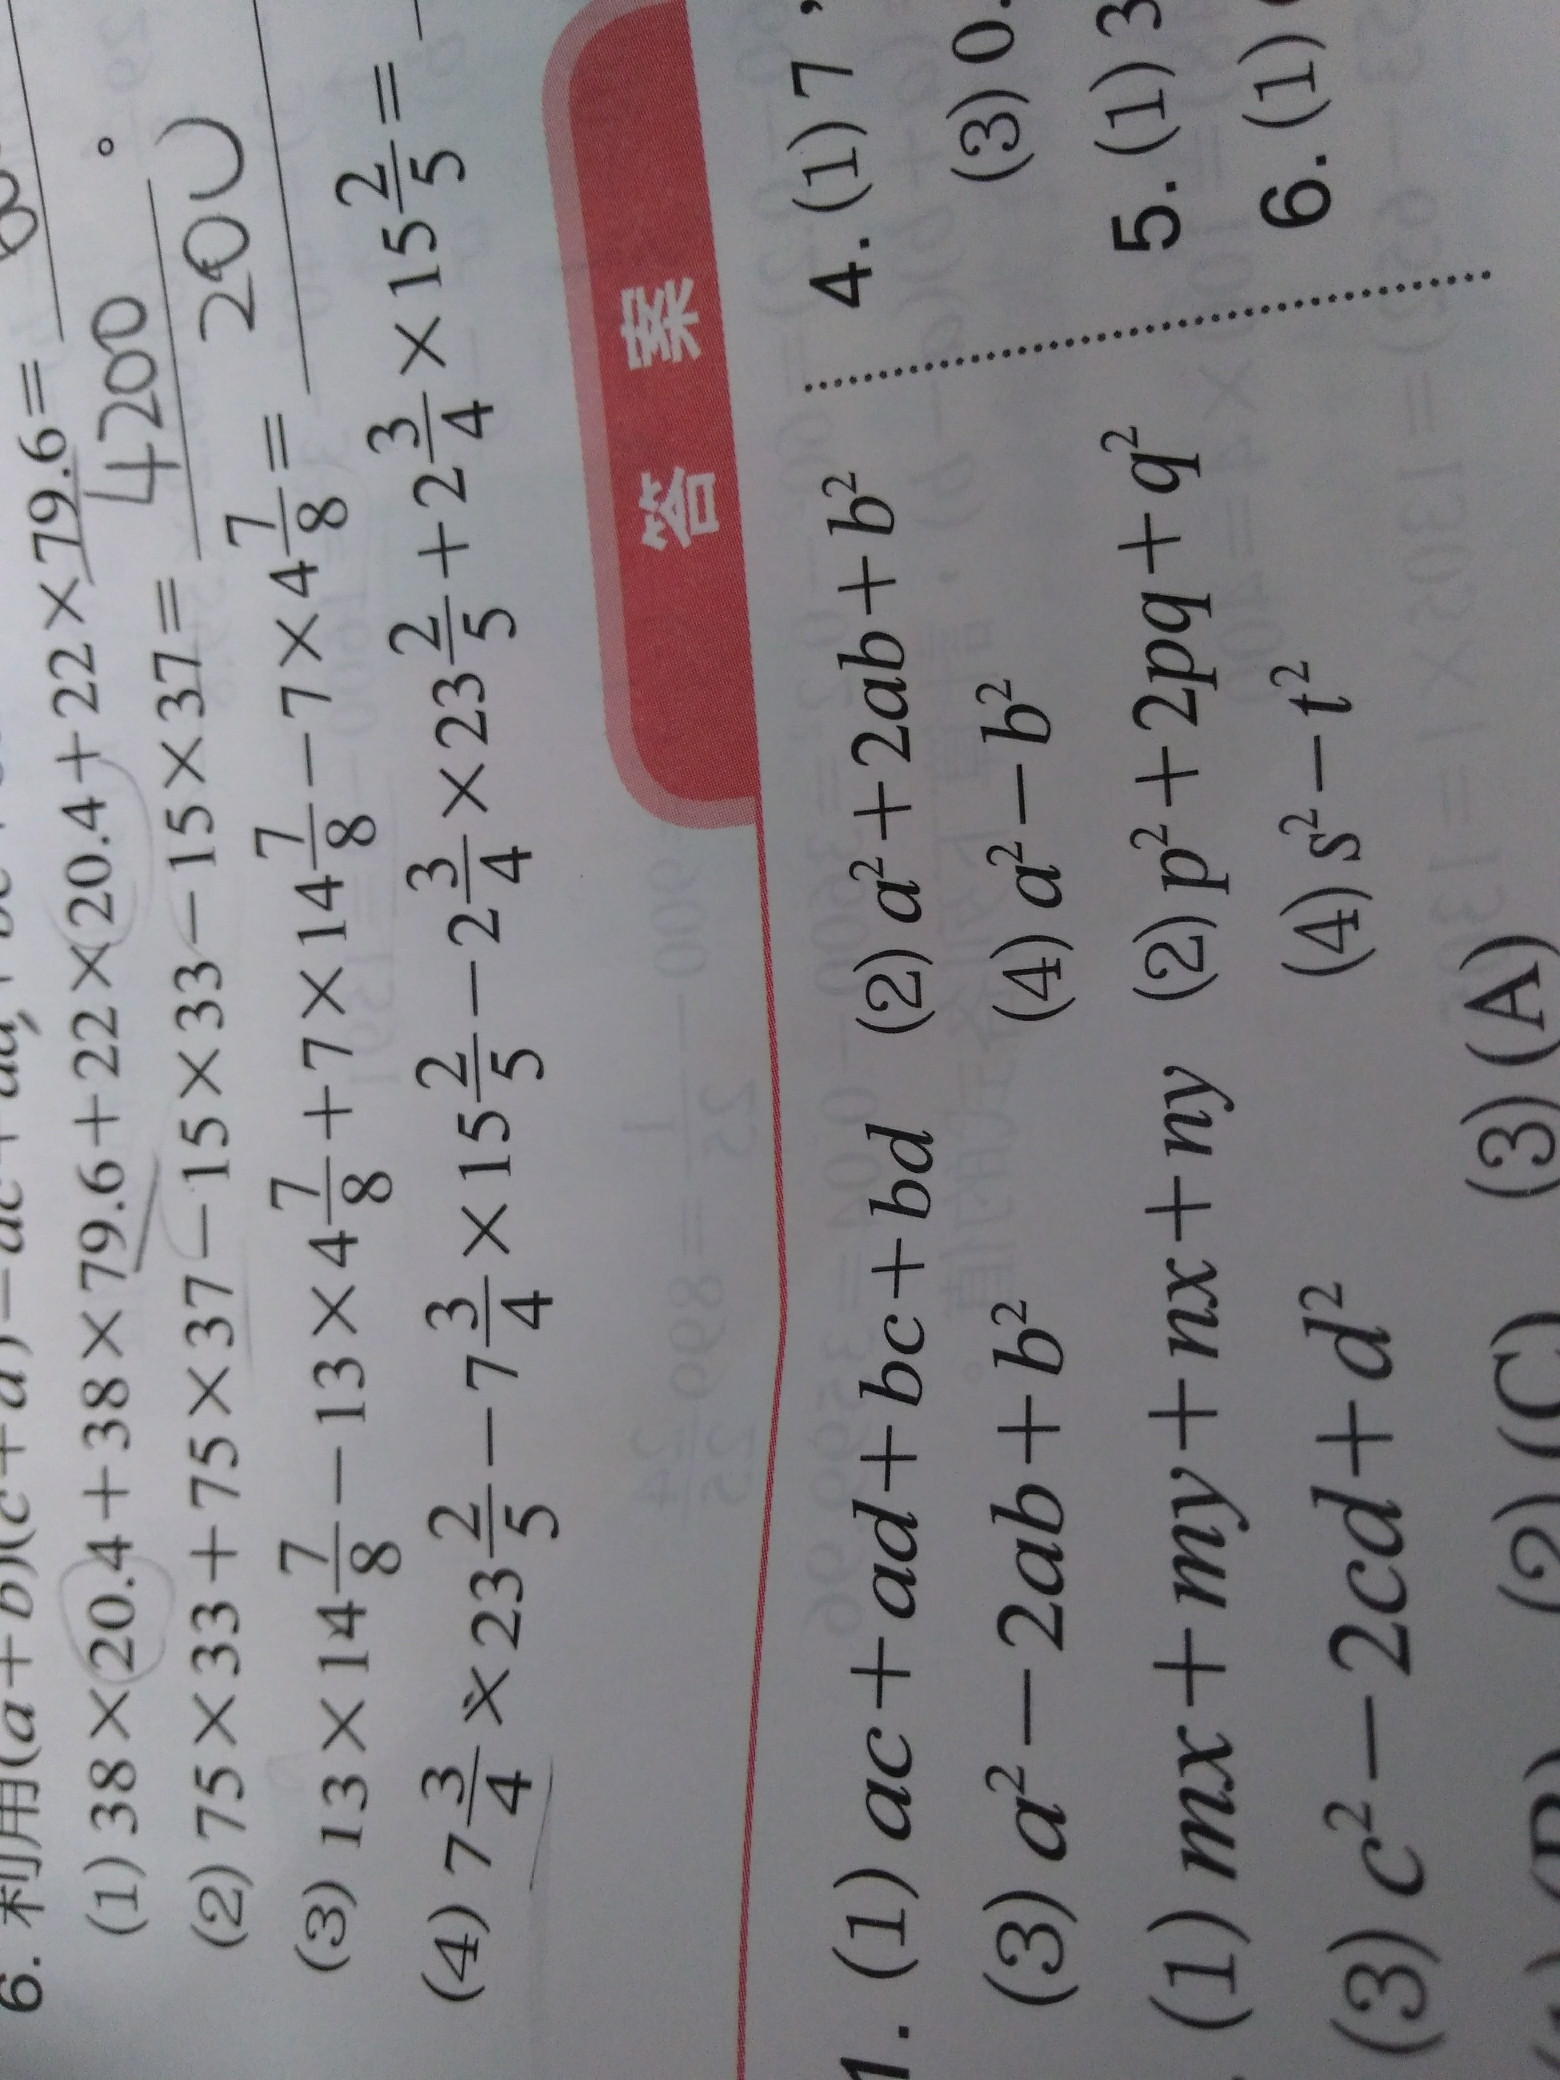 6. 利用(a+b)(c+d)=ac+ad+bc
(1) 38×20.4+38×79.6+22×20.4+22×79.6=
4200
(2) 75×33+75×37-15×33-15×37=
200
(3) 13×14\frac{7}{8}-13×4\frac{7}{8}+7×14\frac{7}{8}-7×4\frac{7}{8}=
(4) 7\frac{3}{4}×23\frac{2}{5}-7\frac{3}{4}×15\frac{2}{5}-2\frac{3}{4}×23\frac{2}{5}+2\frac{3}{4}×15\frac{2}{5}=
答 案
1. (1) ac+ad+bc+bd (2) a²+2ab+b²
(3) a²-2ab+b² (4) a²-b²
(1) mx+my+nx+ny (2) p²+2pq+q²
(3) c²-2cd+d² (4) s²-t²
(2) (C) (3) (A)
4. (1) 7,
(3) 0.
5. (1) 3
6. (1)